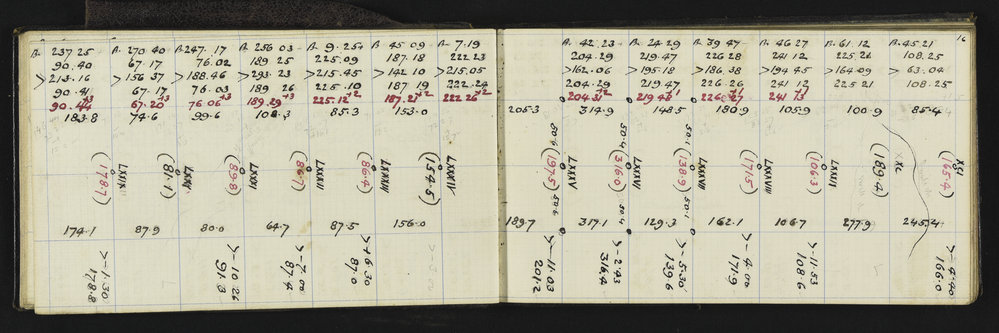 A. 237 25 A. 270 40 A. 247. 17 A. 256 03 A. 9. 25 A. 45 09 A. 7. 19
90. 40 67. 17 76. 02 189 25 225.09 187. 18 222 23
>213. 16 >156 37 >188. 46 >293. 23 >215. 45 >142 10 >215.05
90. 41 67. 17 76. 03 189 26 225.10 187 19 222.24
90. 44 67. 20 76 06 189.29 225.12 187. 21 222 26
183.8 74.6 99.6 108.3 85.3 153.0
LXXX LXXXI LXXXII LXXXIII LXXXIV
(178.7) (81.1) (89.8) (86.7) (86.4) (154.5)
174.1 87.9 80.0 64.7 87.5 156.0
>-1.30 178.8
>-10.26 91.3
>-7.00 87.4
>+6.30 87.0
16
A. 42. 23 A. 24. 29 A. 39 47 A. 46 27 A. 61. 12 A. 45. 21
204.29 219.47 226 28 241 12 225.21 108.25
>162.06 >195.18 >186.38 >194 45 >164.09 >63.04
204.29 219.47 226.26 241 12 225 21 108.25
204.31 219 48 226 27 241 13
205.3 314.9 148.5 180.9 105.9 100.9 85.4
50.6 50.4 50.1
LXXXV LXXXVI LXXXVII LXXXVIII XC XCI
(197.5) (316.0) (138.9) (171.5) (106.3) (189.4) (165.4)
50.6 50.4 50.1
189.7 317.1 129.3 162.1 106.7 277.9 245.4
>-11.03 201.2
>-2.43 316.4
>-5.30 139.6
>-4.00 171.9
>-11.53 108.6
>-4.40 166.0